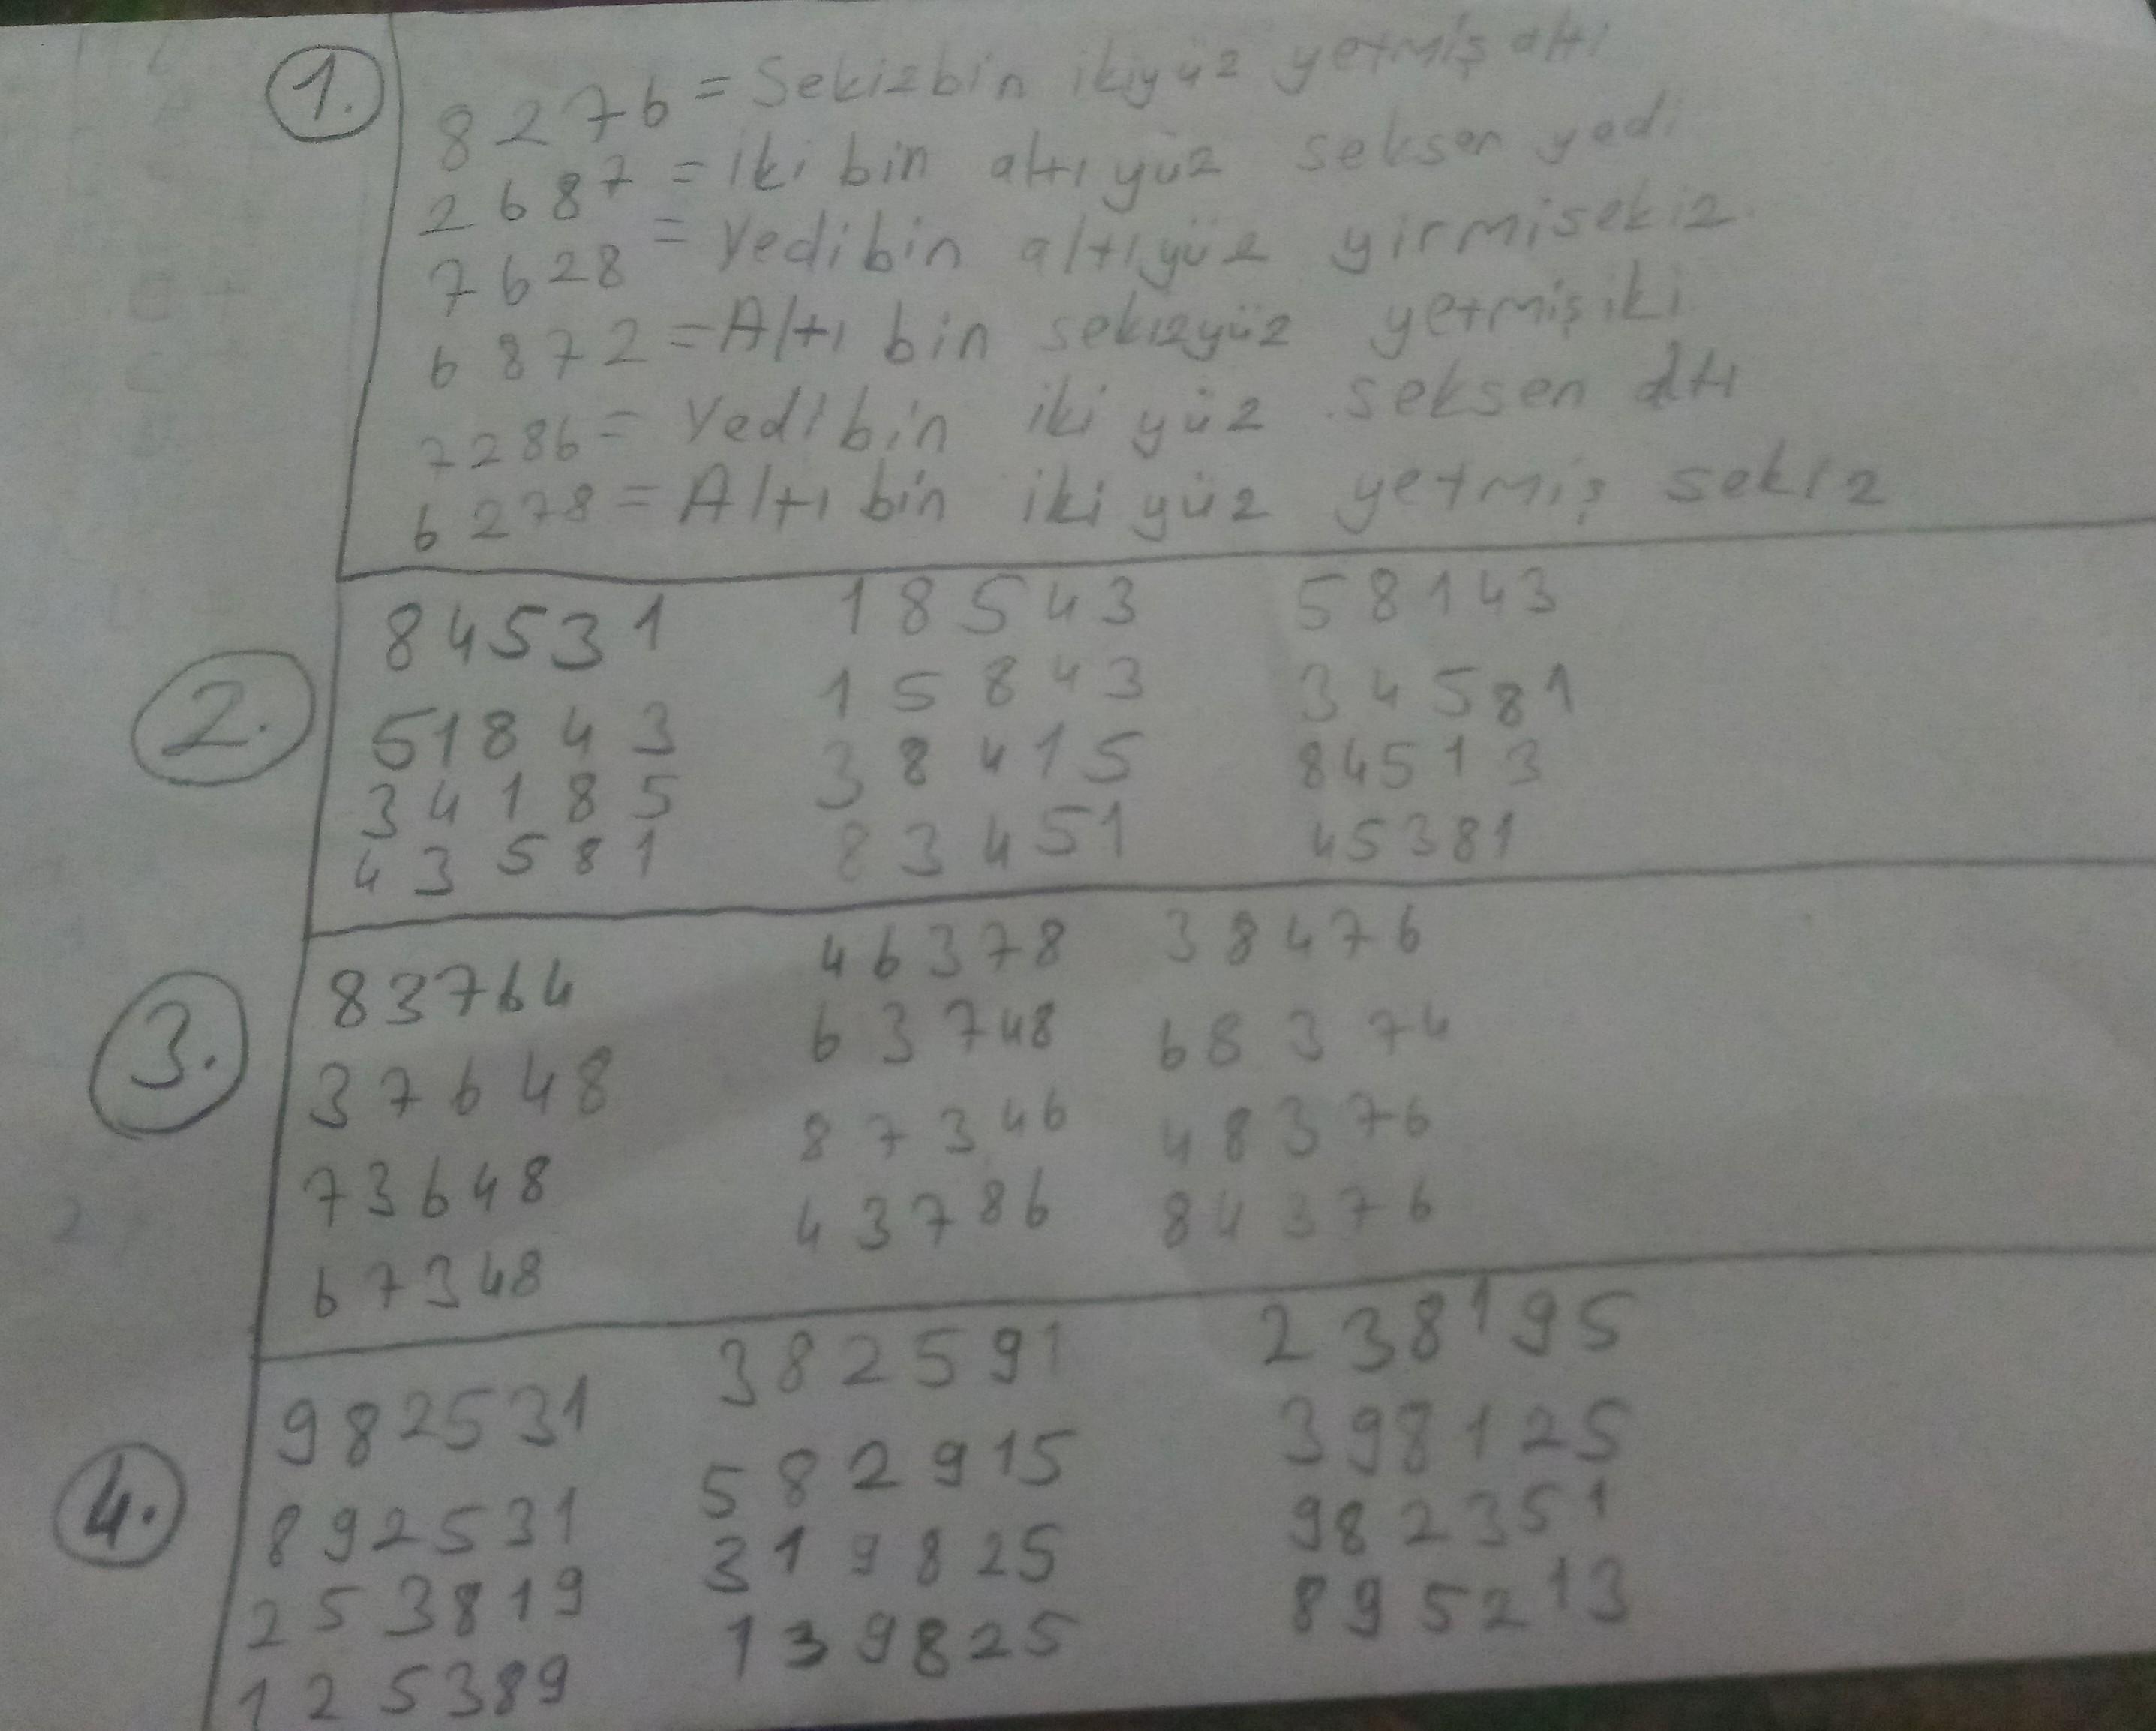 1.
8276 = Sekizbin ikiyüz yetmiş altı
2687 = iki bin altı yüz seksen yedi
7628 = Yedibin altıyüz yirmisekiz
6872 = Altı bin sekizyüz yetmiş iki
7286 = Yedibin iki yüz seksen altı
6278 = Altı bin iki yüz yetmiş sekiz
2.
84531 18543 58143
51843 15843 34581
34185 38415 84513
43581 83451 45381
3.
83764 46378 38476
37648 63748 68374
73648 87346 48376
67348 43786 84376
4.
982531 382591 238195
892531 582915 398125
253819 319825 982351
125389 139825 895213